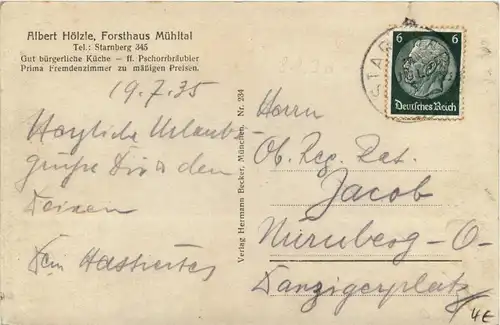 Albert Hölzle, Forsthaus Mühltal
Tel.: Starnberg 345
Gut bürgerliche Küche — ff. Pschorrbräubier
Prima Fremdenzimmer zu mäßigen Preisen.
19.7.35
Herzliche Urlaubs-
grüße Dir & den
Deinen
Dein
Verlag Hermann Becker, München. Nr. 234
6 6
Deutsches Reich
STAR
Herrn
Ob. Reg. Rat.
Jacob
Nürnberg-O-
Danzigerplatz
4€